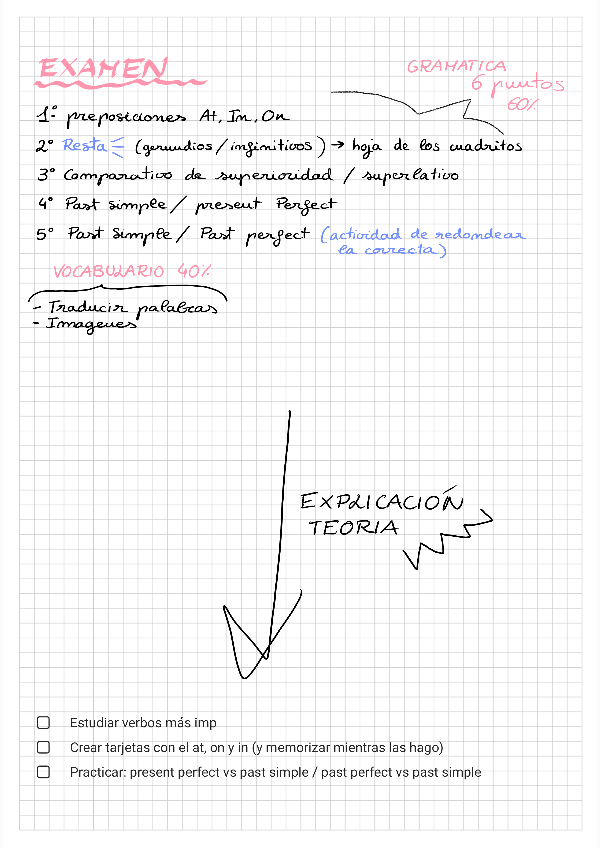 EXAMEN
GRAMATICA
6 puntos
60%
1º preposiciones At, In, On
2º Resta (gerundios / infinitivos) → hoja de los cuadritos
3º Comparativo de superioridad / superlativo
4º Past simple / present Perfect
5º Past Simple / Past perfect (actividad de redondear
la correcta)
VOCABULARIO 40%
- Traducir palabras
- Imagenes
EXPLICACIÓN
TEORIA
Estudiar verbos más imp
Crear tarjetas con el at, on y in (y memorizar mientras las hago)
Practicar: present perfect vs past simple / past perfect vs past simple